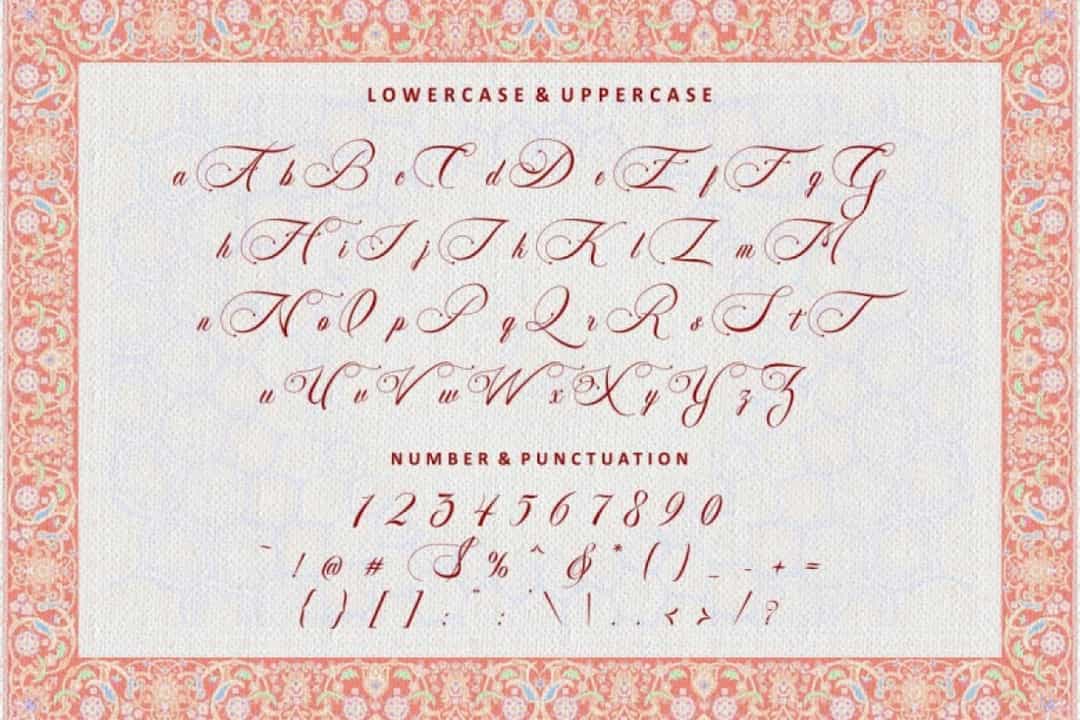 LOWERCASE & UPPERCASE
a A b B c C d D e E f F g G
h H i I j J k K l L m M
n N o O p P q Q r R s S t T
u U v V w W x X y Y z Z
NUMBER & PUNCTUATION
1 2 3 4 5 6 7 8 9 0
~ ! @ # $ % ^ & * ( ) _ - + =
{ } [ ] : " ; ' \ | . . < > / ?